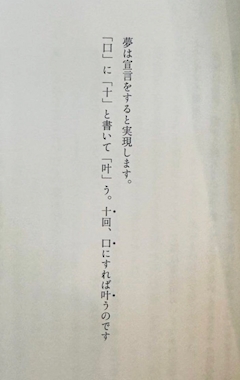 夢は宣言をすると実現します。
「口」に「十」と書いて「叶」う。十回、口にすれば叶うのです